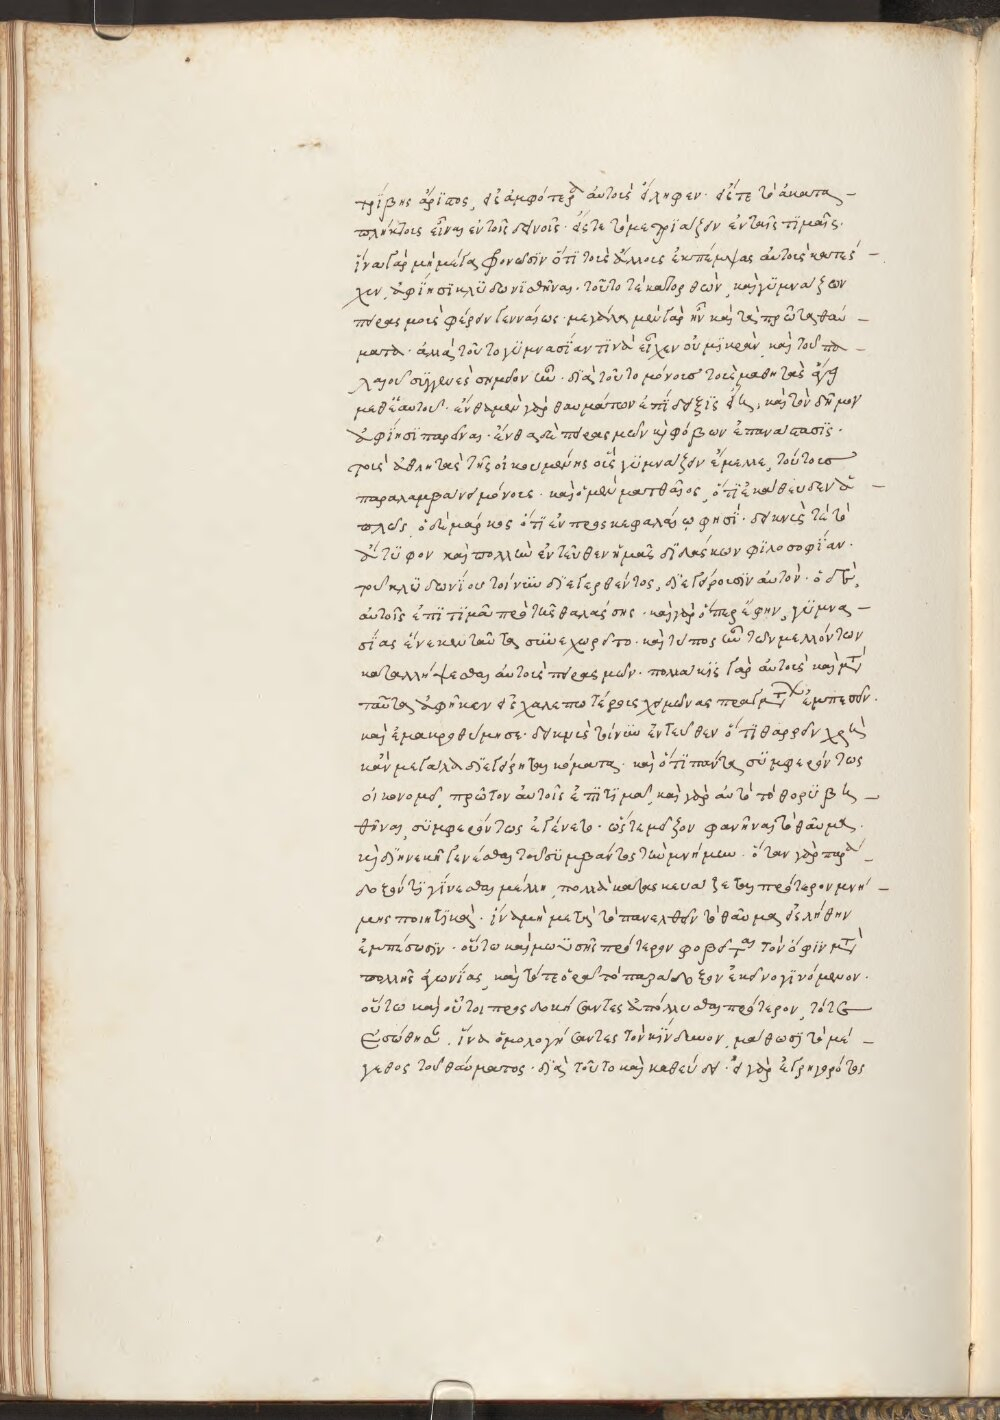 τρίβης ἄριστος, εἰς ἀμφότερα αὐτοὺς ἤλειφεν· εἴς τε τὸ ἀκατα-
πλήκτους εἶναι ἐν τοῖς δεινοῖς· εἴς τε τὸ μετριάζειν ἐν ταῖς τιμαῖς·
ἵνα γὰρ μὴ μέγα φρονῶσιν ὅτι τοὺς ἄλλους ἐκπέμψας αὐτοὺς κατέσ-
χεν, ἀφίησι κλυδωνισθῆναι· τοῦτό τε κατορθῶν, καὶ γυμνάζων
πειρασμοὺς φέρειν γενναίως· μεγάλα μὲν γὰρ ἦν καὶ τὰ πρῶτα θαύ-
ματα· ἀλλὰ τοῦτο γυμνασίαν τινὰ εἶχεν οὐ μικρὰν, καὶ τοῦ πα-
λαιοῦ συγγενὲς σημεῖον ἦν· διὰ τοῦτο μόνους τοὺς μαθητὰς ἄγει
μεθ' ἑαυτοῦ· ἔνθα μὲν γὰρ θαυμάτων ἐπίδειξις ἦν, καὶ τὸν δῆμον
ἀφίησι παρεῖναι· ἔνθα δὲ πειρασμῶν καὶ φόβων ἐπανάστασις·
τοὺς ἀθλητὰς τῆς οἰκουμένης οὓς γυμνάζειν ἔμελλε, τούτους
παραλαμβάνει μόνους· καὶ ὁ μὲν ματθαῖος, ὅτι ἐκάθευδεν ἁ-
πλῶς, ὁ δὲ μάρκος ὅτι ἐν προσκεφαλαίῳ φησί· δεικνὺς τὲ τὸ
ἄτυφον καὶ πολλὴν ἐντεῦθεν ἡμᾶς διδάσκων φιλοσοφίαν·
τοῦ κλυδωνίου τοίνυν διεγερθέντος, διεγείρουσιν αὐτόν· ὁ δὲ,
αὐτοῖς ἐπιτιμᾶ πρὸ τῆς θαλάσσης· καὶ γὰρ ὅπερ ἔφην, γυμνα-
σίας ἕνεκεν ταῦτα συνεχωρεῖτο· καὶ τύπος ἦν τῶν μελλόντων
καταλήψεσθαι αὐτοὺς πειρασμῶν· πολλάκις γὰρ αὐτοὺς καὶ μετὰ
ταῦτα ἀφῆκεν εἰς χαλεπωτέρους χειμῶνας πραγμάτων ἐμπεσεῖν·
καὶ ἐμακροθύμησε· δεικνὺς τοίνυν ἐντεῦθεν ὅτι θαρρεῖν χρὴ
κἂν μεγάλα διεγείρηται κύματα· καὶ ὅτι πάντα συμφερόντως
οἰκονομεῖ, πρῶτον αὐτοῖς ἐπιτιμᾷ, καὶ γὰρ αὐτὸ τὸ θορυβη-
θῆναι, συμφερόντως ἐγένετο· ὥστε μεῖζον φανῆναι τὸ θαῦμα,
καὶ διηνεκῆ γενέσθαι τοῦ συμβάντος τὴν μνήμην· ὅταν γὰρ παρά-
δοξόν τι γίνεσθαι μέλλη, πολλὰ κατασκευάζεται πρότερον μνή-
μης ποιητικὰ· ἵνα μὴ μετὰ τὸ παρελθεῖν τὸ θαῦμα εἰς λήθην
ἐμπέσωσιν· οὕτω καὶ μωϋσῆς πρότερον φοβεῖται τὸν ὄφιν μετὰ
πολλῆς ἀγωνίας, καὶ τότε ὁρᾶ τὸ παράδοξον ἐκεῖνο γινόμενον·
οὕτω καὶ οὗτοι προσδοκήσαντες ἀπόλλυσθαι πρότερον, τότε
ἐσώθησαν, ἵνα ὁμολογήσαντες τὸν κίνδυνον, μάθωσι τὸ μέ-
γεθος τοῦ θαύματος· διὰ τοῦτο καὶ καθεύδει· εἰ γὰρ ἐγρηγορότος